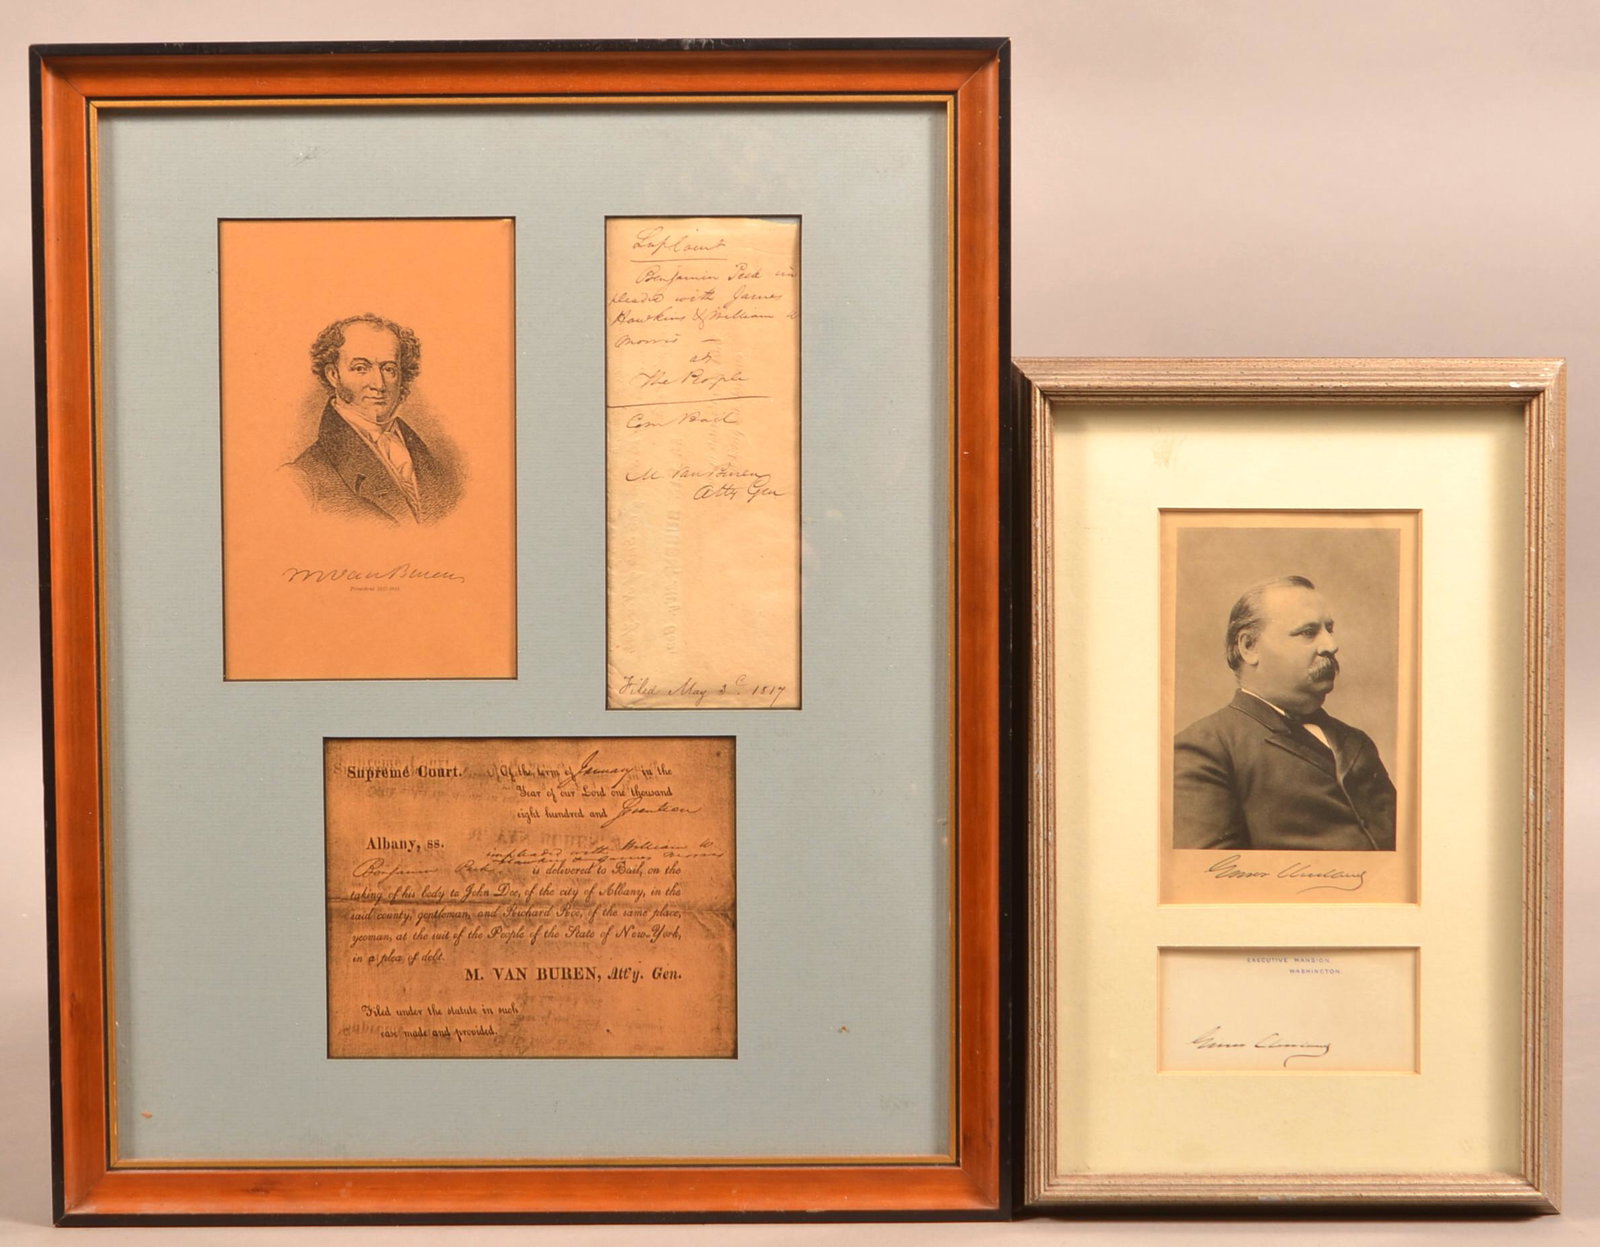 M Van Buren
President 1837-1841
Benjamin Peek im
pleaded with James
Hawkins & William W
Morris —
ads
The People
Com Bail
M Van Buren
Atty Gen
Filed May 3d. 1817
Supreme Court. Of the term of January in the
Year of our Lord one thousand
eight hundred and Seventeen
Albany, ss.
impleaded with William W
Hawkins & James Morris
Benjamin Peek is delivered to Bail, on the
taking of his body to John Doe, of the city of Albany, in the
said county, gentleman, and Richard Roe, of the same place,
yeoman, at the suit of the People of the State of New-York,
in a plea of debt.
M. VAN BUREN, Att'y. Gen.
Filed under the statute in such
case made and provided.
Grover Cleveland
EXECUTIVE MANSION,
WASHINGTON.
Grover Cleveland